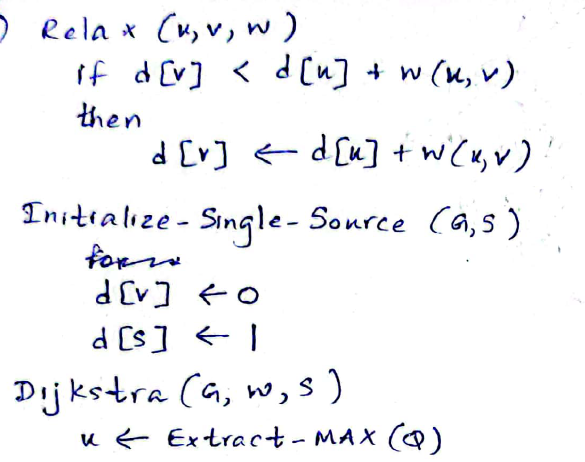 ) Relax (u, v, w)
if d[v] < d[u] + w(u, v)
then
d[v] ← d[u] + w(u, v)
Initialize - Single - Source (G, S)
for
d[v] ← 0
d[s] ← 1
Dijkstra (G, w, s)
u ← Extract - MAX (Q)